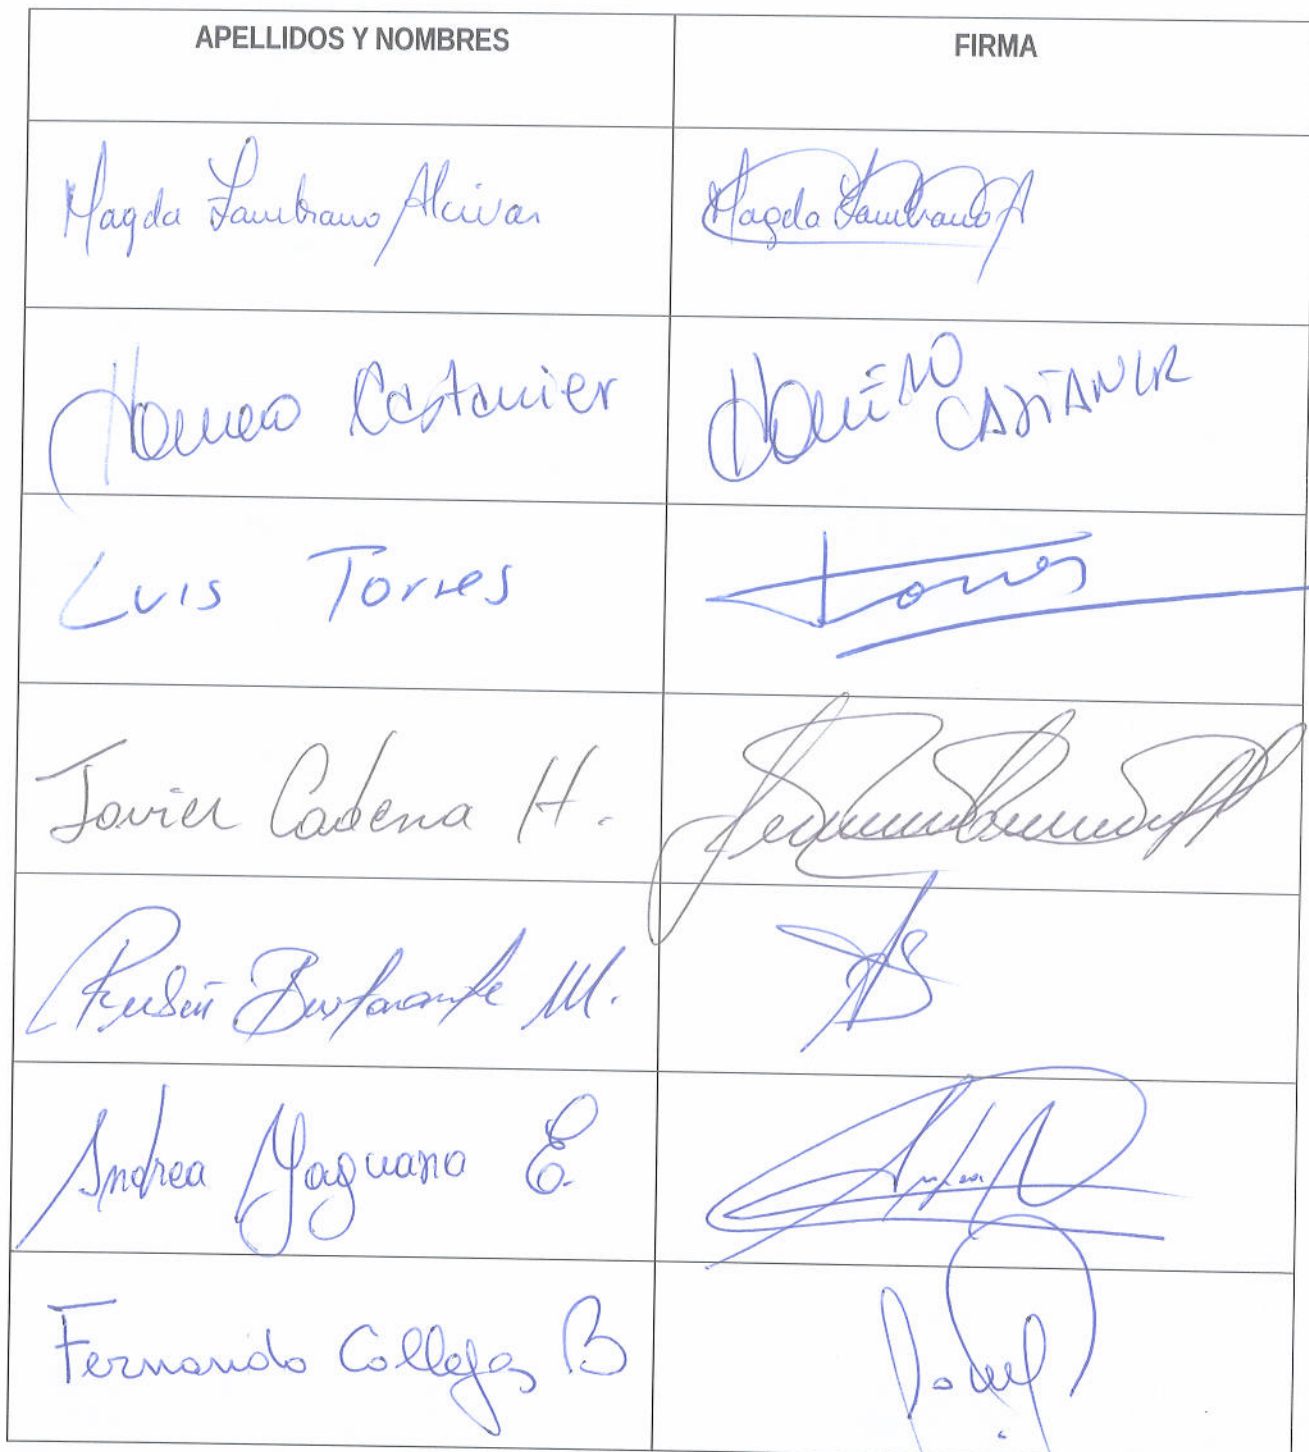 APELLIDOS Y NOMBRES FIRMA
Magda Zambrano Alcivar Magda Zambrano A
Homero Castanier HOMERO CASTANIER
Luis Torres Torres
Javier Cadena H.
Rubén Bustamante M.
Andrea Yaguana E. Andrea
Fernando Callejas B